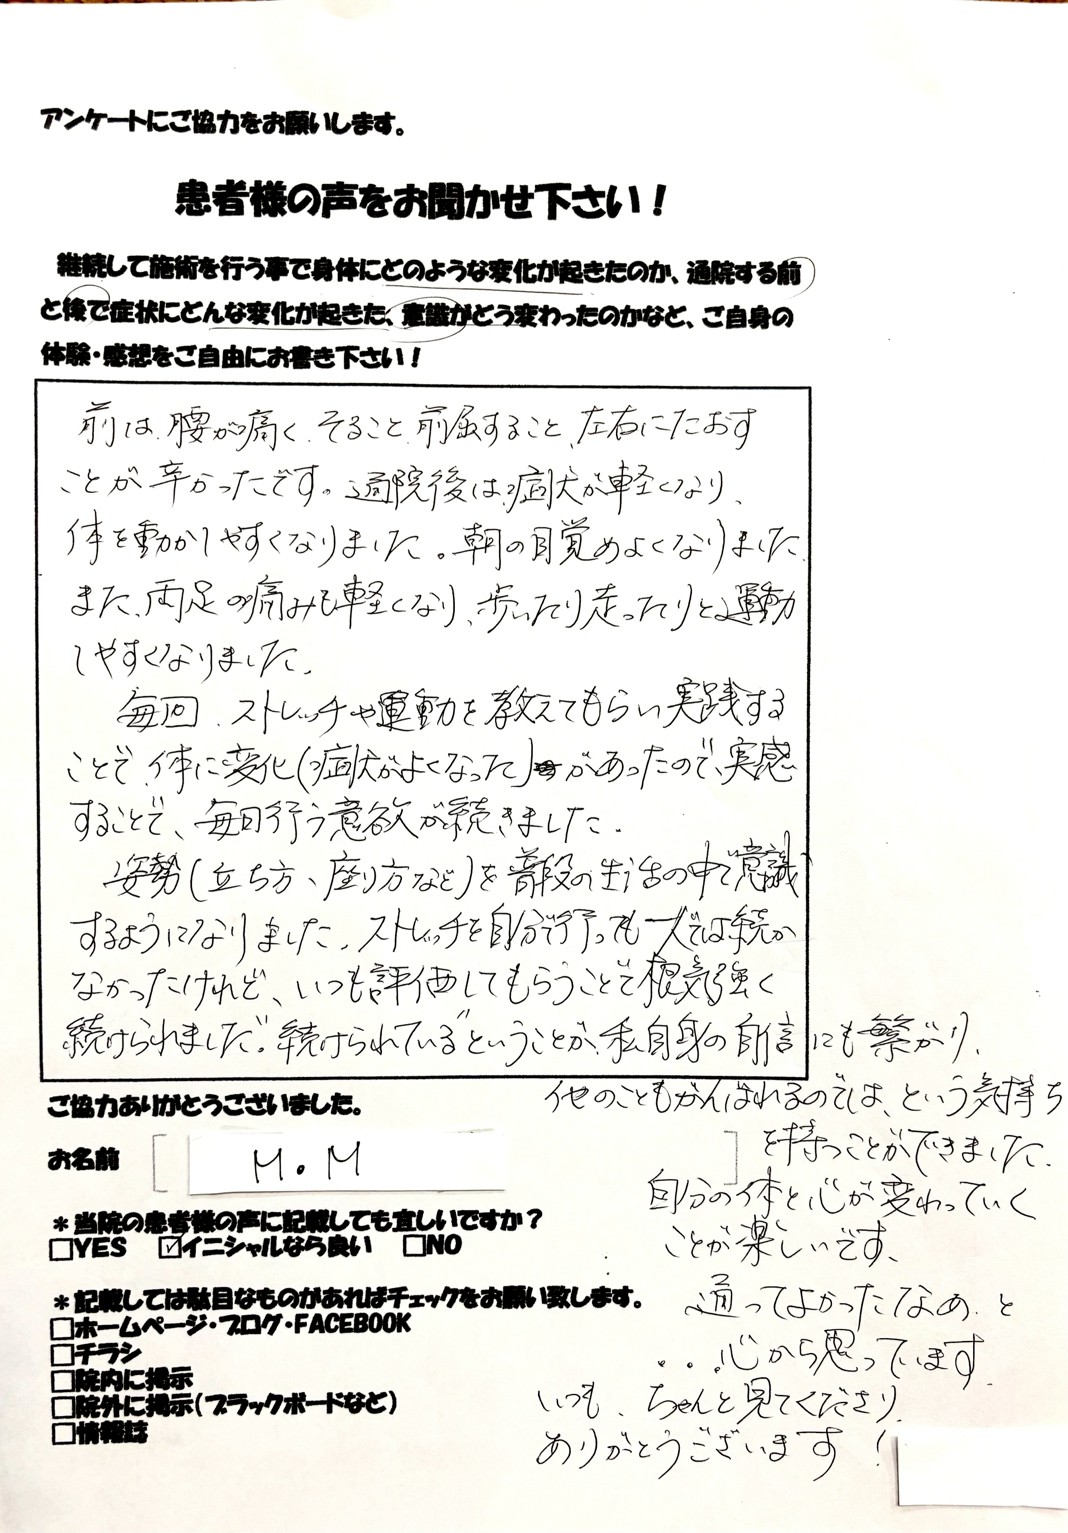 アンケートにご協力をお願いします。
患者様の声をお聞かせ下さい!
継続して施術を行う事で身体にどのような変化が起きたのか、通院する前
と後で症状にどんな変化が起きた、意識がどう変わったのかなど、ご自身の
体験・感想をご自由にお書き下さい!
前は、腰が痛く、そること、前屈すること、左右にたおす
ことが辛かったです。通院後は、症状が軽くなり、
体を動かしやすくなりました。朝の目覚めよくなりました
また、両足の痛みも軽くなり、歩いたり走ったりと運動
しやすくなりました。
毎回、ストレッチや運動を教えてもらい実践する
ことで、体に変化(症状がよくなった)があったので、実感
することで、毎日行う意欲が続きました。
姿勢(立ち方、座り方など)を普段の生活の中で意識
するようになりました。ストレッチを自分で行っても一人では続か
なかったけれど、いつも評価してもらうことで根気強く
続けられました。"続けられている"ということが、私自身の自信にも繋がり、
他のこともがんばれるのでは、という気持ち
を持つことができました。
自分の体と心が変わっていく
ことが楽しいです。
通ってよかったなぁ、と
...心から思っています。
いつも、ちゃんと見てくださり、
ありがとうございます!
ご協力ありがとうございました。
お名前 M.M
*当院の患者様の声に記載しても宜しいですか?
□YES ☑イニシャルなら良い □NO
*記載しては駄目なものがあればチェックをお願い致します。
□ホームページ・ブログ・FACEBOOK
□チラシ
□院内に掲示
□院外に掲示(ブラックボードなど)
□情報誌